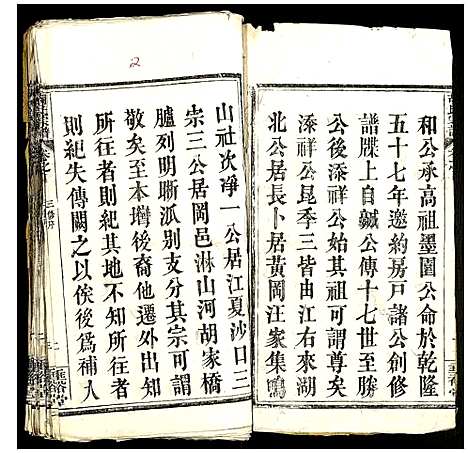 和公承高祖墨園公命於乾隆
五十七年邀約房戶諸公創修
譜牒上自諴公傳十七世至勝
公後添祥公始其祖可謂尊矣
添祥公昆季三皆由江右來湖
北公居長卜居黃岡汪家集鳴
山社次淨一公居江夏沙口三
崇三公居岡邑淋山河胡家橋
臚列明晰派別支分其宗可謂
敬矣至本壻後裔他遷外出知
所往者則紀其地不知所往者
則紀失傳闕之以俟後爲補入
三修序
2